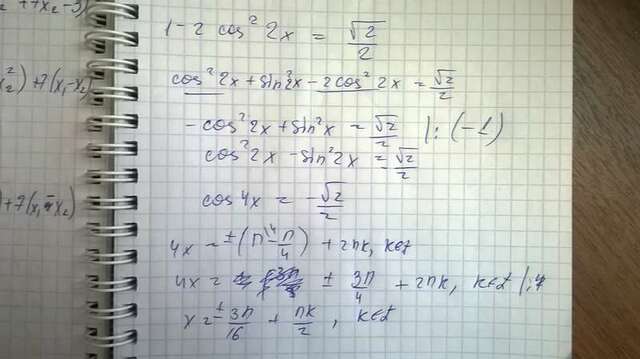 ² + 7x₂ - 3)
1 - 2 cos² 2x = √2/2
x₂²) + 7(x₁ - x₂)
cos² 2x + sin² 2x - 2cos² 2x = √2/2
- cos² 2x + sin² x = √2/2 |: (-1)
cos² 2x - sin² 2x = -√2/2
) + 7(x₁ - x₂)
cos 4x = - √2/2
4x = ± (π - π/4) + 2πk, k∈Z
4x = ± 3π/4 + 2πk, k∈Z |:4
x = ± 3π/16 + πk/2 , k∈Z